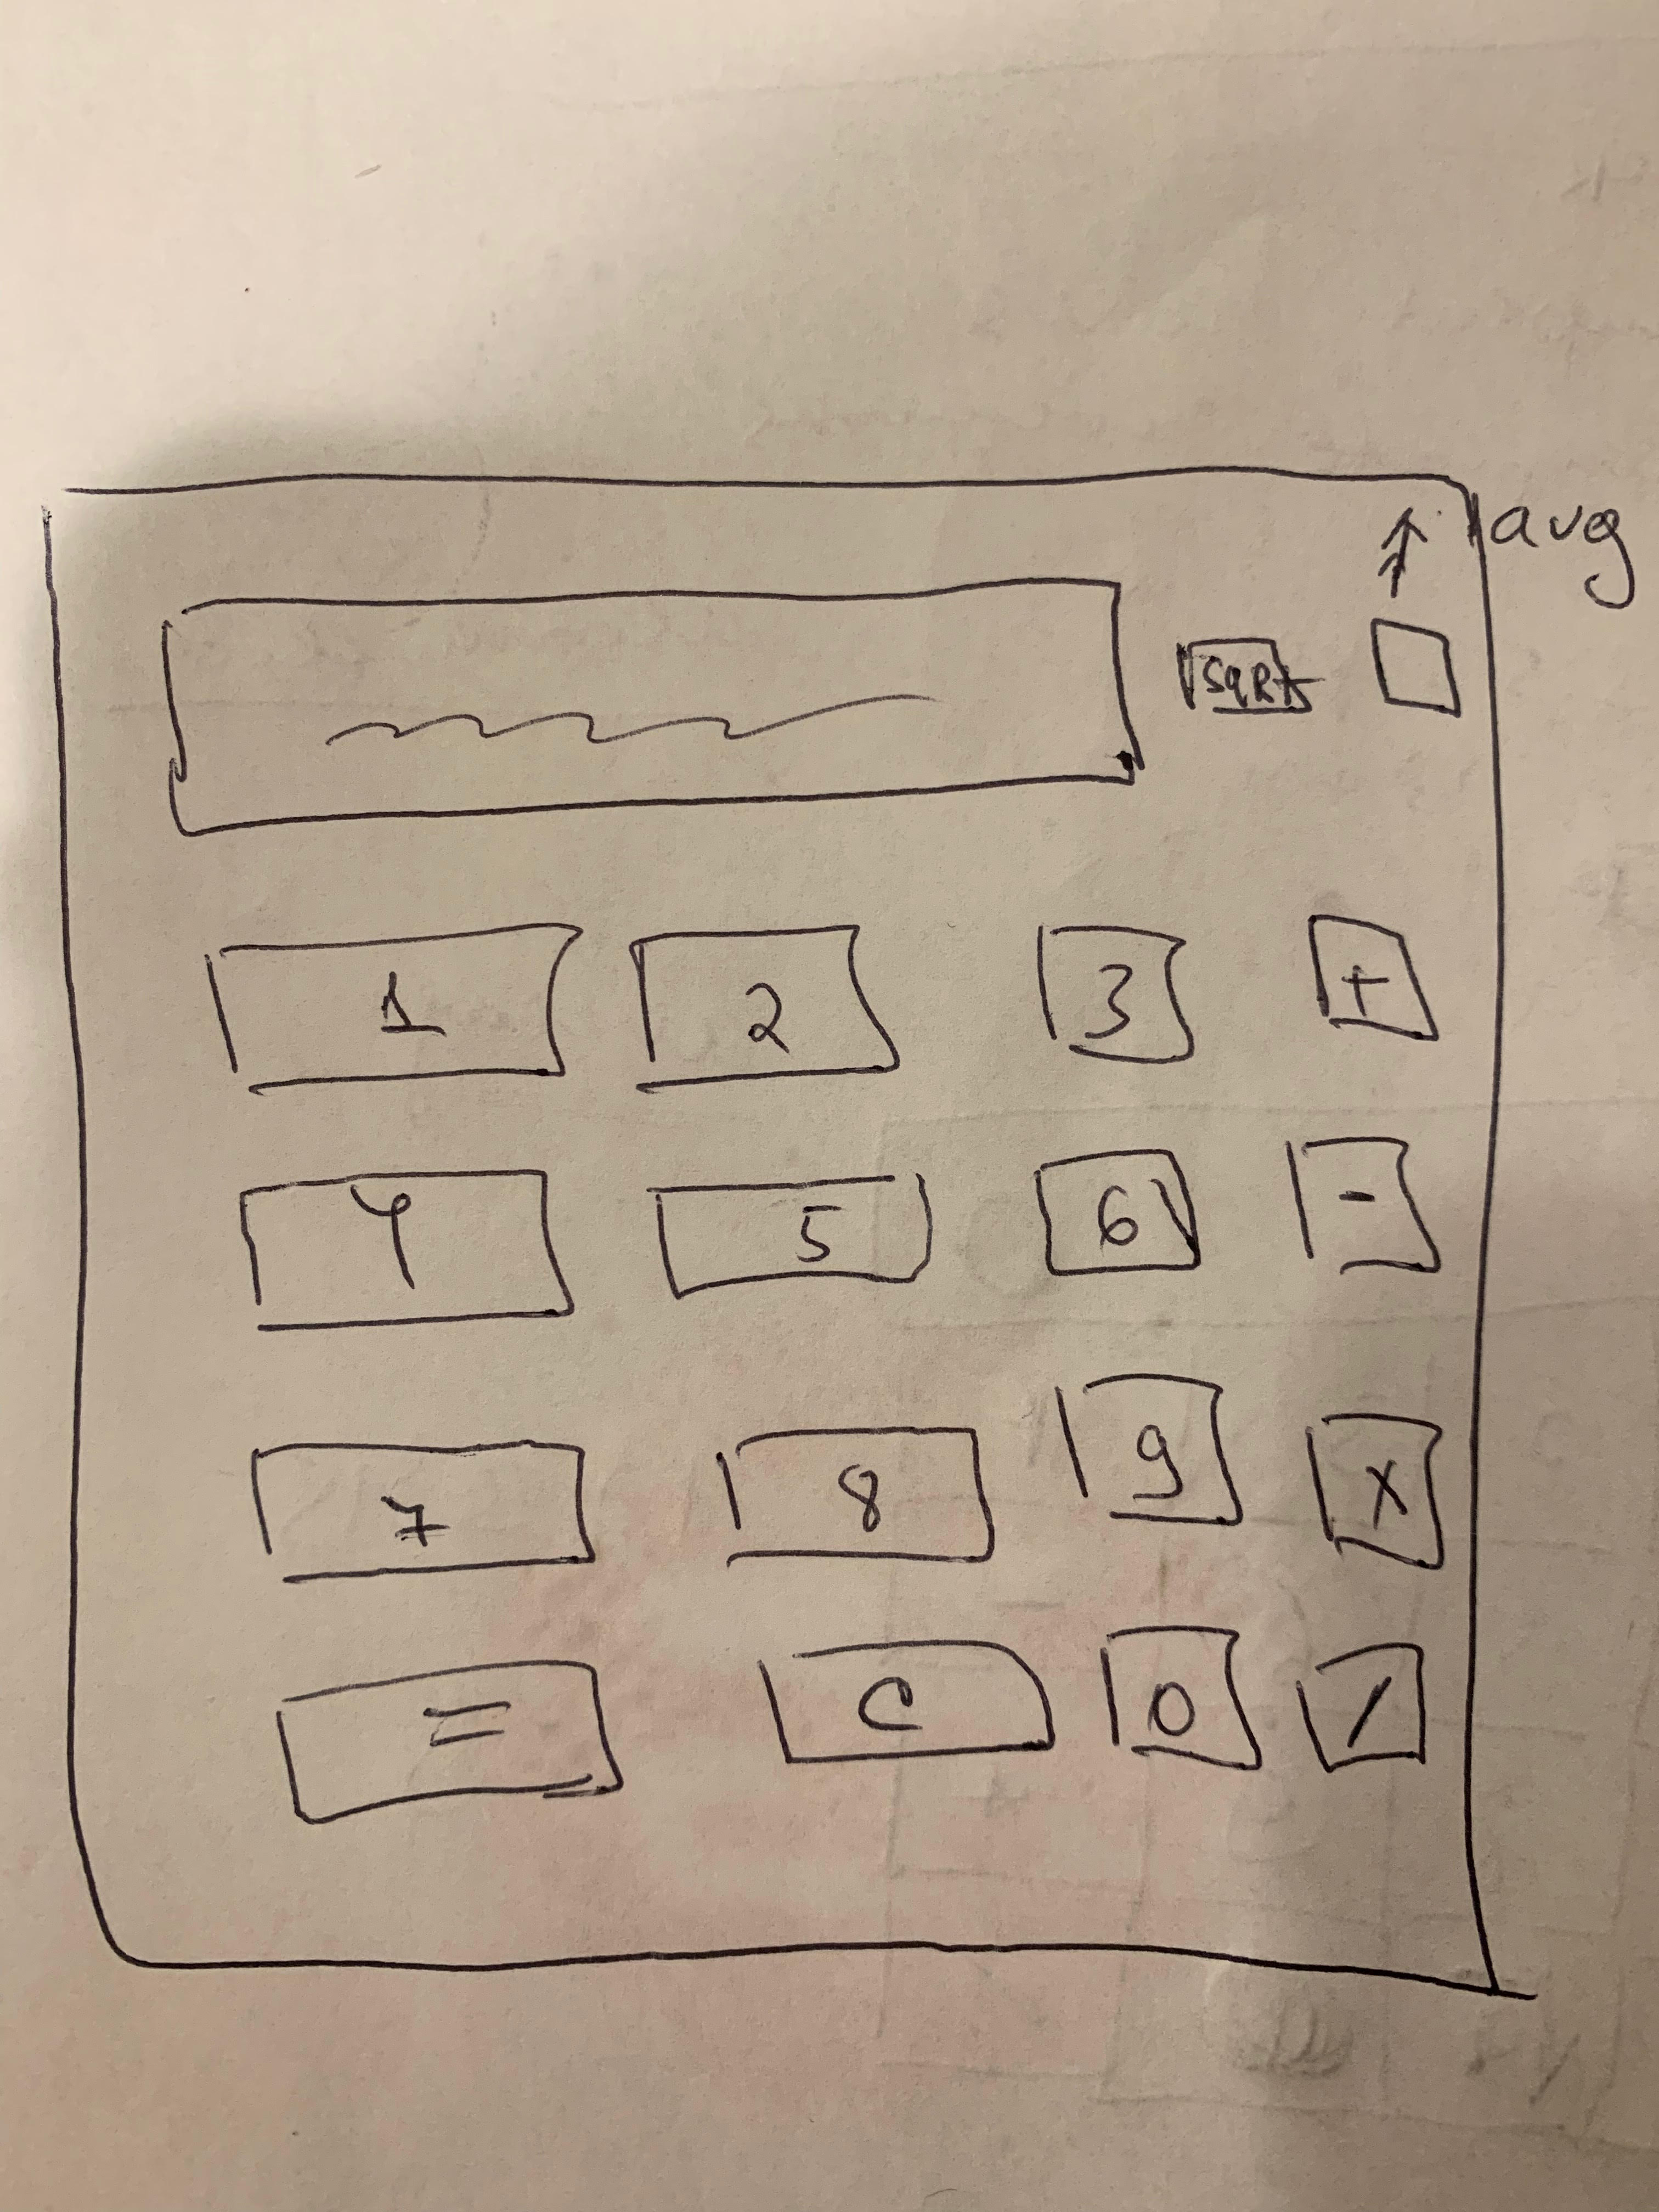 avg
SQRT
1 2 3 +
4 5 6 -
7 8 9 X
= C 0 /